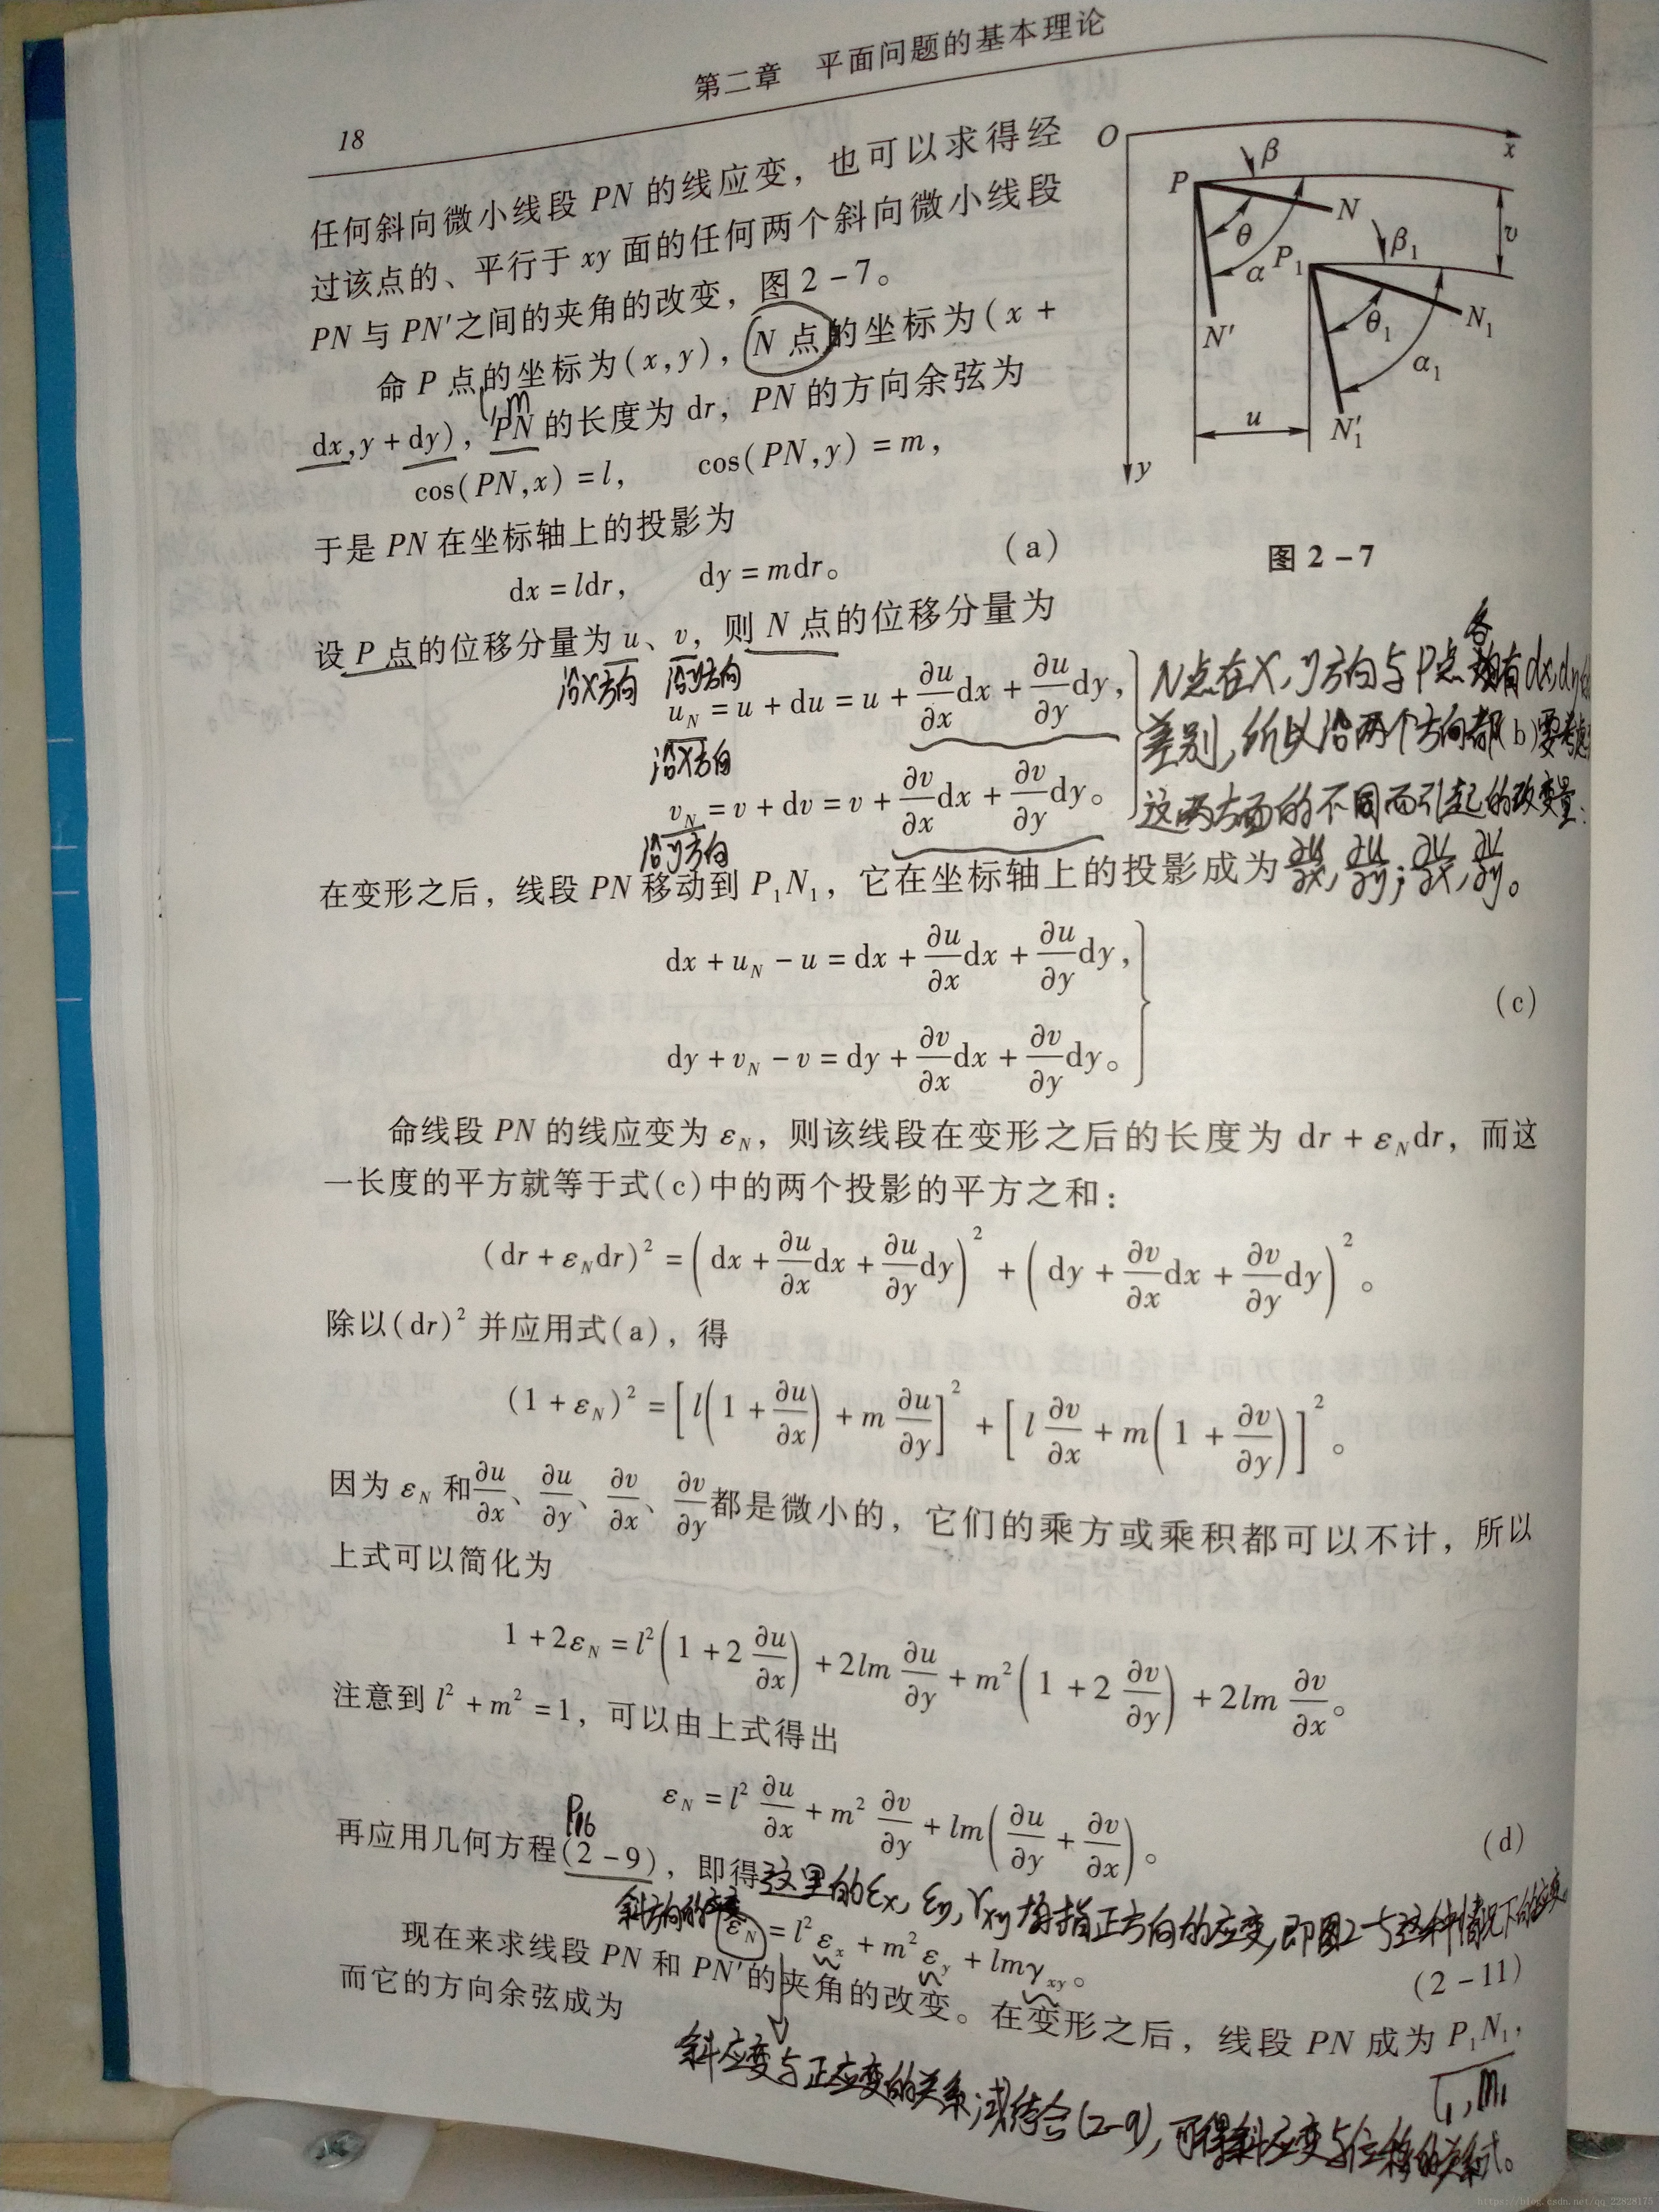 第二章 平面问题的基本理论
18
任何斜向微小线段 PN 的线应变，也可以求得经
过该点的、平行于 xy 面的任何两个斜向微小线段
PN 与 PN′之间的夹角的改变，图 2-7。
命 P 点的坐标为(x,y)，N 点的坐标为(x +
l, m
dx,y + dy)，PN 的长度为 dr，PN 的方向余弦为
cos(PN,x) = l, cos(PN,y) = m,
于是 PN 在坐标轴上的投影为
dx = ldr, dy = mdr。 (a)
O
x
β
P
N
θ
α
P₁
β₁
v
N′
θ₁
N₁
α₁
u
N₁′
y
图 2-7
设 P 点的位移分量为 u、v，则 N 点的位移分量为
沿x方向 沿y方向
u_N = u + du = u + ∂u/∂x dx + ∂u/∂y dy,
沿x方向
v_N = v + dv = v + ∂v/∂x dx + ∂v/∂y dy。
沿y方向
(b)
N点在x,y方向与P点各有dx,dy
差别,所以沿两个方向都要考虑
这两方面的不同而引起的改变量:
∂u/∂x, ∂u/∂y; ∂v/∂x, ∂v/∂y。
在变形之后，线段 PN 移动到 P₁N₁，它在坐标轴上的投影成为
dx + u_N - u = dx + ∂u/∂x dx + ∂u/∂y dy,
(c)
dy + v_N - v = dy + ∂v/∂x dx + ∂v/∂y dy。
命线段 PN 的线应变为 ε_N，则该线段在变形之后的长度为 dr + ε_N dr，而这
一长度的平方就等于式(c)中的两个投影的平方之和：
(dr + ε_N dr)² = (dx + ∂u/∂x dx + ∂u/∂y dy)² + (dy + ∂v/∂x dx + ∂v/∂y dy)²。
除以(dr)² 并应用式(a)，得
(1 + ε_N)² = [l(1 + ∂u/∂x) + m ∂u/∂y]² + [l ∂v/∂x + m(1 + ∂v/∂y)]²。
因为 ε_N 和 ∂u/∂x、∂u/∂y、∂v/∂x、∂v/∂y 都是微小的，它们的乘方或乘积都可以不计，所以
上式可以简化为
1 + 2ε_N = l²(1 + 2 ∂u/∂x) + 2lm ∂u/∂y + m²(1 + 2 ∂v/∂y) + 2lm ∂v/∂x。
注意到 l² + m² = 1，可以由上式得出
ε_N = l² ∂u/∂x + m² ∂v/∂y + lm(∂u/∂y + ∂v/∂x)。 (d)
P16
再应用几何方程(2-9)，即得
这里的εx, εy, γxy 均指正方向的应变,即图2-5这种情况下的应变。
斜方向的应变
ε_N = l²ε_x + m²ε_y + lmγ_xy。 (2-11)
现在来求线段 PN 和 PN′的夹角的改变。在变形之后，线段 PN 成为 P₁N₁,
而它的方向余弦成为
l₁, m₁
斜应变与正应变的关系式结合(2-9),可得斜应变与位移的关系式。
https://blog.csdn.net/qq_22828175